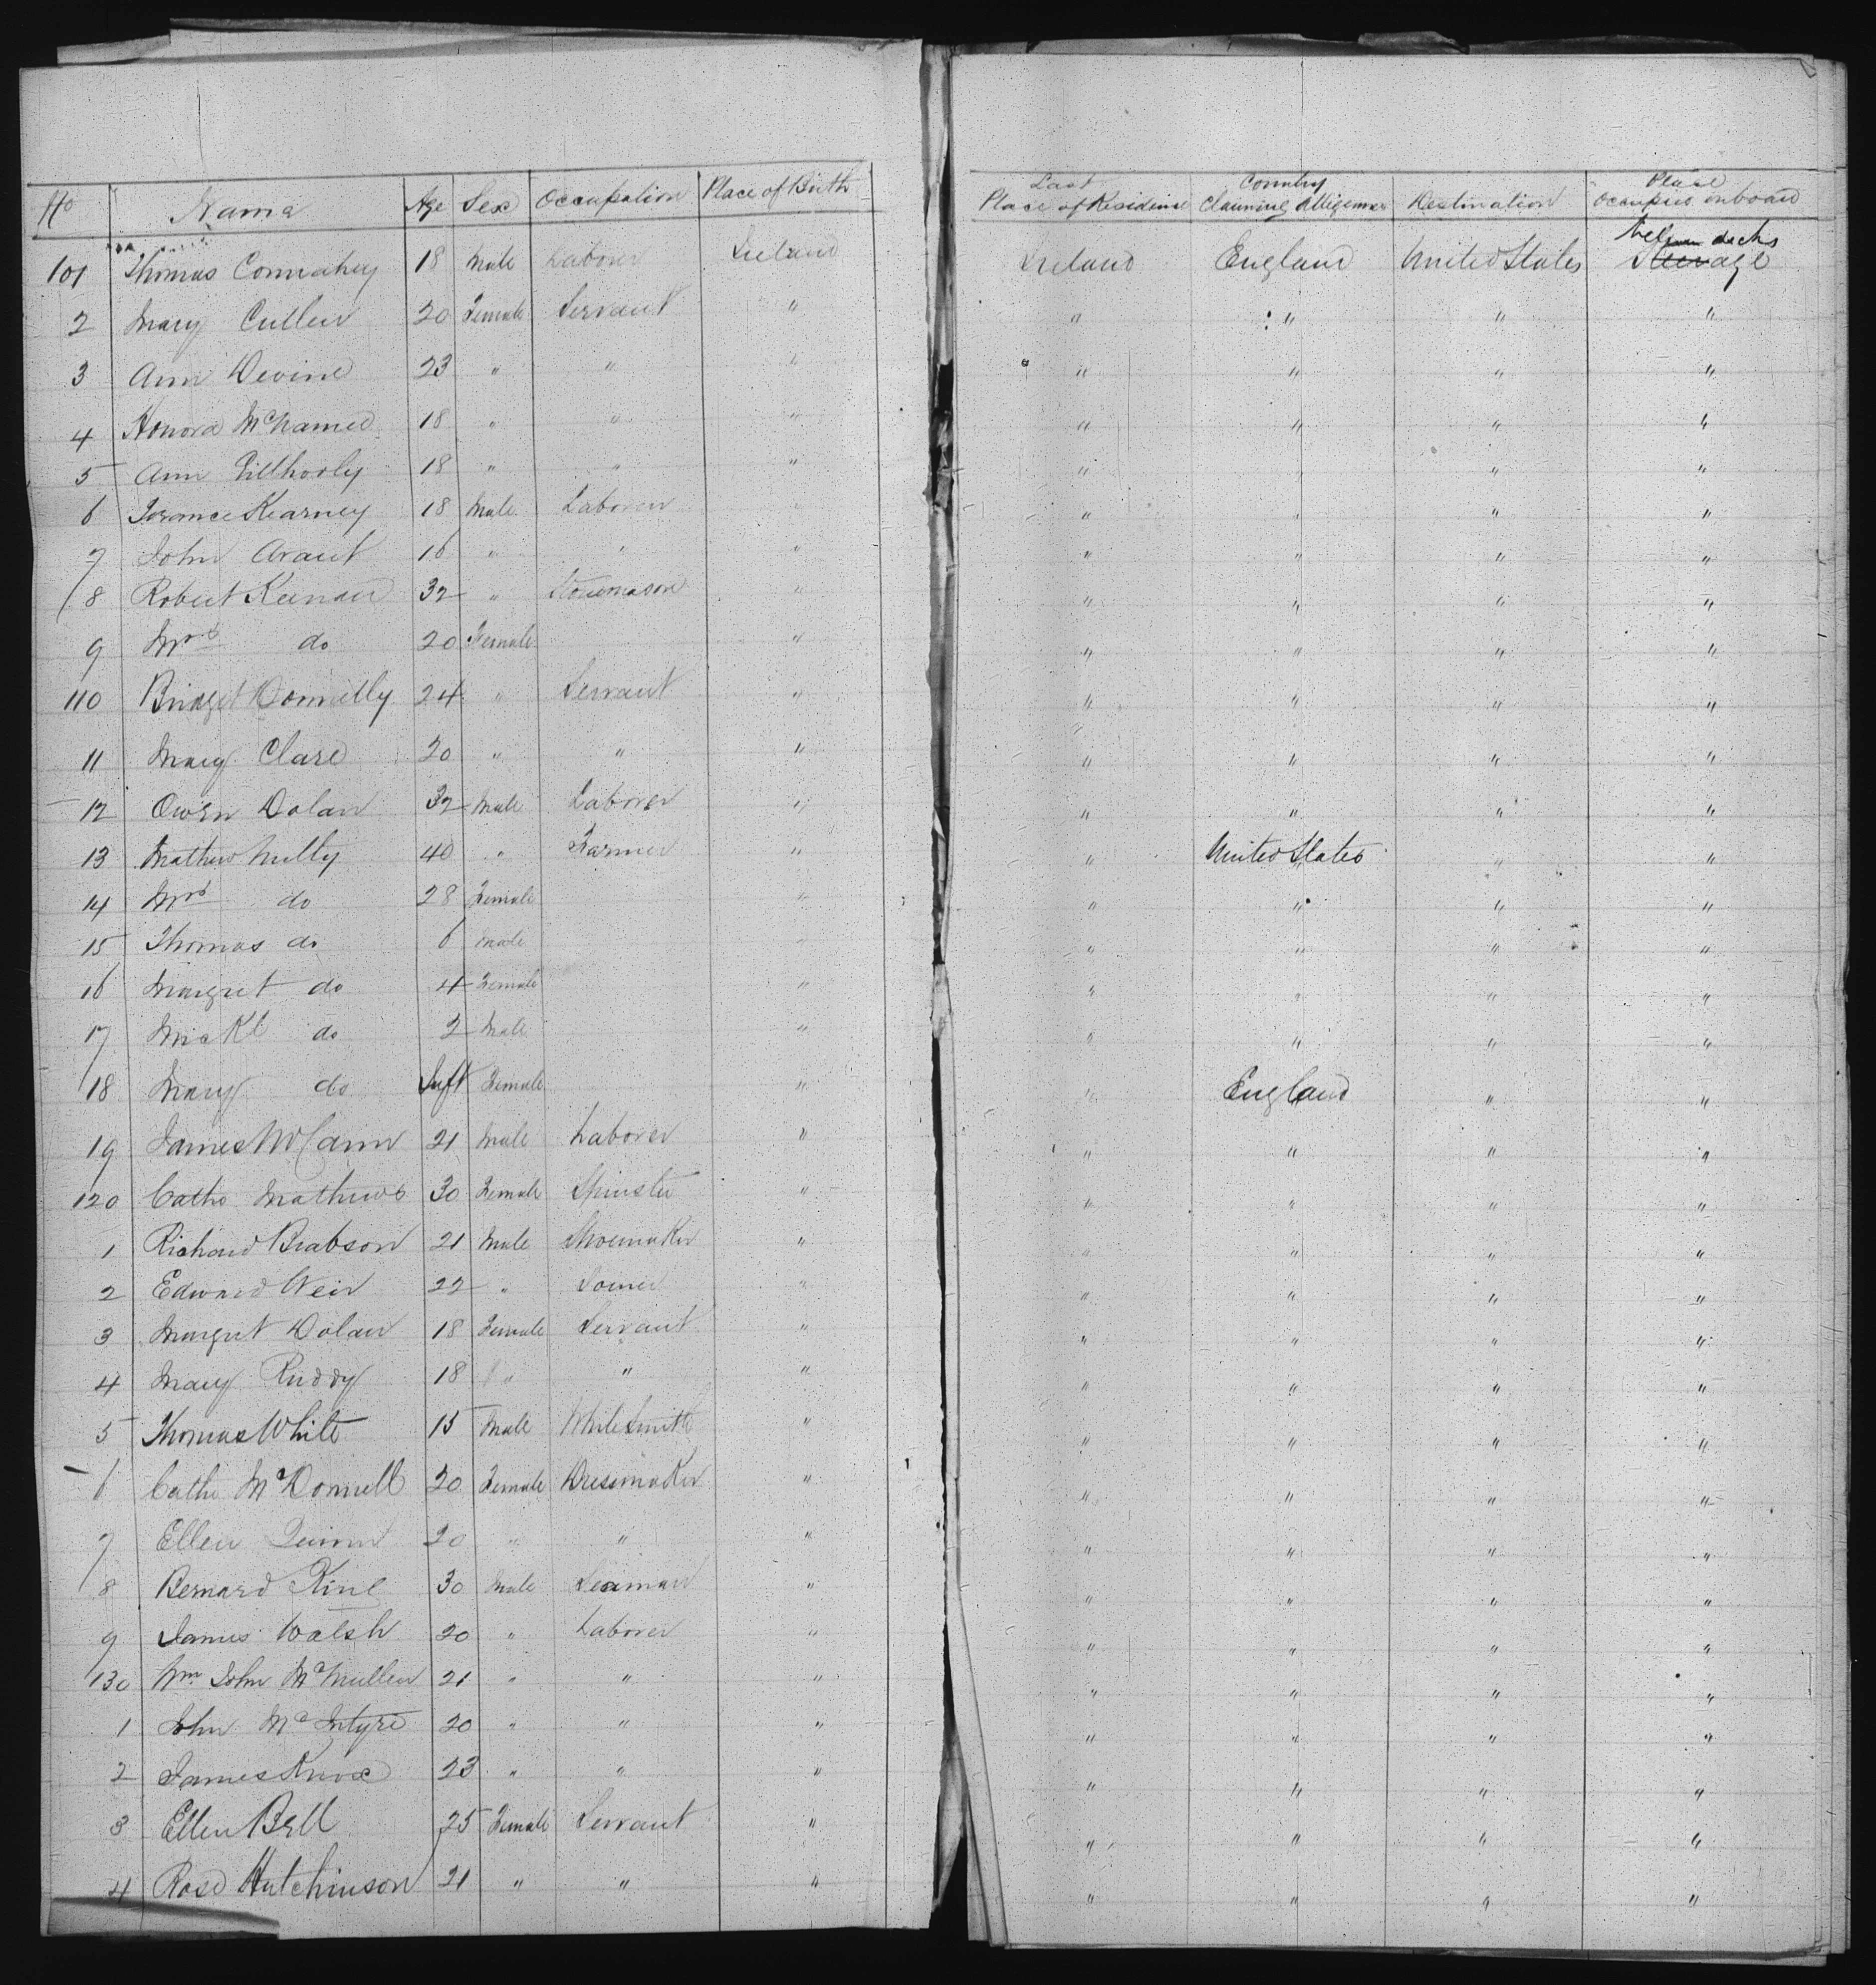 No Name Age Sex Occupation Place of Birth Last Place of Residence Country Claiming Allegiance Destination Place Occupied onboard
101 Thomas Connahey 18 Male Laborer Ireland Ireland England United States decks Steerage
2 Mary Cullen 20 Female Servant " " " " "
3 Ann Devine 23 " " " " " " "
4 Honora McNamee 18 " " " " " " "
5 Ann Gilhooly 18 " " " " " " "
6 Kearney 18 Male Laborer " " " " "
7 John 16 " " " " " " "
8 Robert Keenan 32 " Stonemason " " " " "
9 Mrs do 20 Female " " " " "
110 Bridget Donnelly 24 " Servant " " " " "
11 Mary Clare 20 " " " " " " "
12 Owen Dolan 32 Male Laborer " " " " "
13 Mathew Nulty 40 " Farmer " " United States " "
14 Mrs do 28 Female " " " " "
15 Thomas do 6 Male " " " " "
16 Margret do 4 Female " " " " "
17 do 2 Male " " " " "
18 Mary do Inft Female " " England " "
19 James McCann 21 Male Laborer " " " " "
120 Cathe Mathews 30 Female Spinster " " " " "
1 Richard Brabson 21 Male Shoemaker " " " " "
2 Edward Weir 22 " Joiner " " " " "
3 Margret Dolan 18 Female Servant " " " " "
4 Mary Ruddy 18 " " " " " " "
5 Thomas White 15 Male Whitesmith " " " " "
6 Cathe McDonnell 20 Female Dressmaker " " " " "
7 Ellen Quinn 20 " " " " " " "
8 Bernard Kine 30 Male Seaman " " " " "
9 James Walsh 20 " Laborer " " " " "
130 Wm John McMullen 21 " " " " " " "
1 John McIntyre 20 " " " " " " "
2 James Knox 23 " " " " " " "
3 Ellen Bell 25 Female Servant " " " " "
4 Rose Hutchinson 21 " " " " " " "